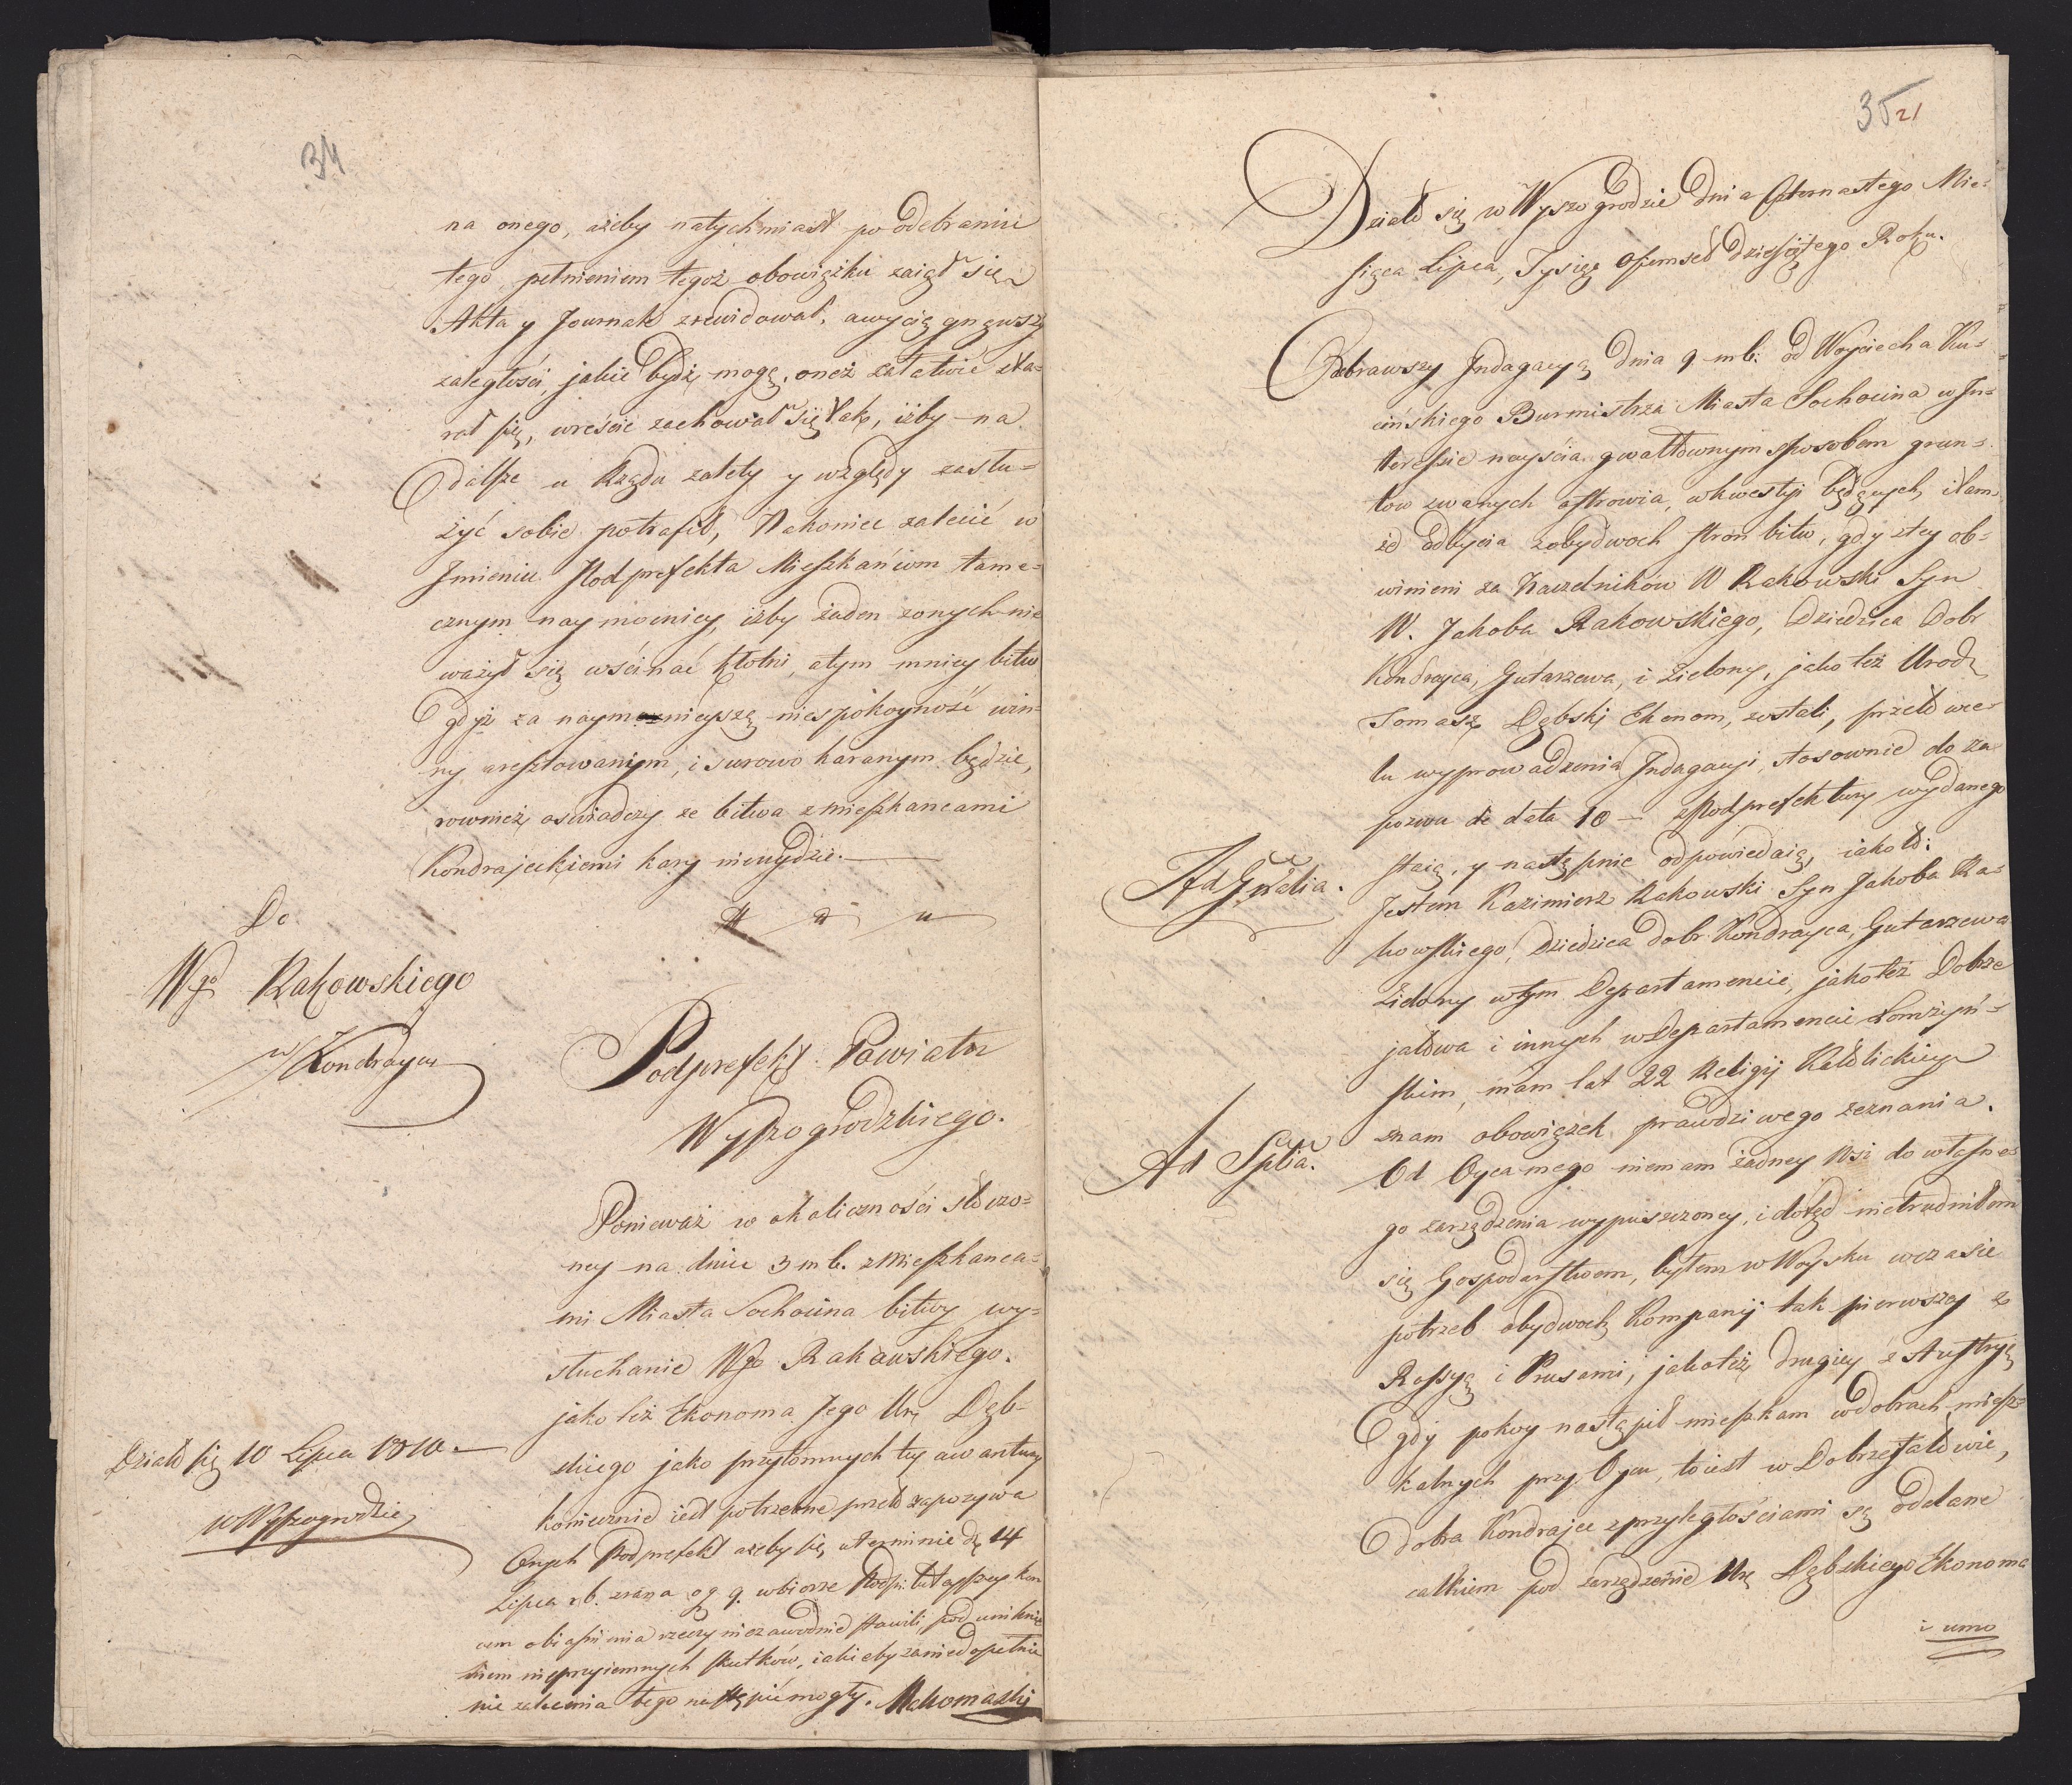 34
na onego, ażeby natychmiast po odebraniu
tego pełnieniem tegoż obowiązku zaiął się
Akta y Journale zrewidował, a wyciągnąwszy
zaległości, jakie bydź mogą, oneż załatwić sta-
rał się, wreście zachował się tak, iżby na
dalsze u Rządu zalety y względy zasłu-
żyć sobie potrafił, Nakoniec zalecić w
Jmieniu Podprefekta Mieszkańcom tame-
cznym naymocniey, iżby żaden z onych nie
ważył się wścinać kłotni, a tym mniey bitw
gdyż za naymnieyszą niespokoyność win-
ny aresztowanym, i surowo karanym będzie,
rownież oświadczy ze bitwa z mieszkancami
Kondrajeckiemi kary nieuydzie.
Do
Wgo Rakowskiego
w Kondraycu
Podprefekt Powiatu
Wyszogrodzkiego.
Ponieważ w okoliczności stoczo-
ney na dniu 3 mb. z Mieszkanca-
mi Miasta Sochocina bitwy wy-
słuchanie Wgo Rakowskiego.
jako też Ekonoma Jego Ur. Dęb-
skiego jako przytomnych tey awantury
koniecznie iest potrzebne, przeto zapozywa
Onych Podprefekt ażeby się w terminie d. 14
Lipca r.b. zrana o g. 9. w biorze Podpr. tutayszey kon
cem obiaśnienia rzeczy niezawodnie stawili, pod uniknie
niem nieprzyiemnych skutków, iakieby za niedopełnie
nie zalecenia tego nastąpić mogły. Makomaski
Działo się 10 Lipca 1810.
w Wyszogrodzie
35 21
Działo się w Wyszogrodzie Dnia Czternastego Mie-
siąca Lipca, Tysiąc Osiemset Dziesiątego Roku.
Odebrawszy Jndagacyą Dnia 9 mb. od Woyciecha Ku-
cińskiego Burmistrza Miasta Sochocina w Jn-
teressie nayścia gwałtownym sposobem grun-
tow zwanych Ostrowia, w kwestyi będących, i tam
że odbycia z obydwoch stron bitw, gdy z tey ob-
winieni za Naczelników W Rakowski Syn
W. Jakoba Rakowskiego, Dziedzica Dobr
Kondrayca, Gutarzewa, i Zielony, jako też Urodz
Tomasz Dębski Ekonom, zostali, przeto w ce-
lu wyprowadzenia Jndagacyi, stosownie do za
pozwu de data 10 – z Podprefektury wydanego
staią, y następnie odpowiedaią, iako to:
Ad Gnralia.
Jestem Kazimierz Rakowski Syn Jakoba Ra-
kowskiego, Dziedzica dobr Kondrayca, Gutarzewa
Zielony w tym Departamencie, jakoteż Dobrze
jałowa i innych w Departamencie Łomżyń-
skim, mam lat 22 Religij Katolickiey
znam obowiązek prawdziwego zeznania.
Ad Splia.
Od Oyca mego niemam żadney Wsi do własne-
go zarządzenia wypuszczoney, i dotąd nietrudniłem
się Gospodarstwem, byłem w Woysku w czasie
potrzeb obydwoch Kompanij tak pierwszey z
Rossyą i Prusami, jakoteż drugiey z Austryą
gdy pokoy nastąpił mieszkam w dobrach miesz-
kalnych przy Oycu, to iest w Dobrzejałowie,
dobra Kondrajec z przyległościami są oddane
całkiem pod zarządzenie Ur. Dębskiego Ekonoma
i umo